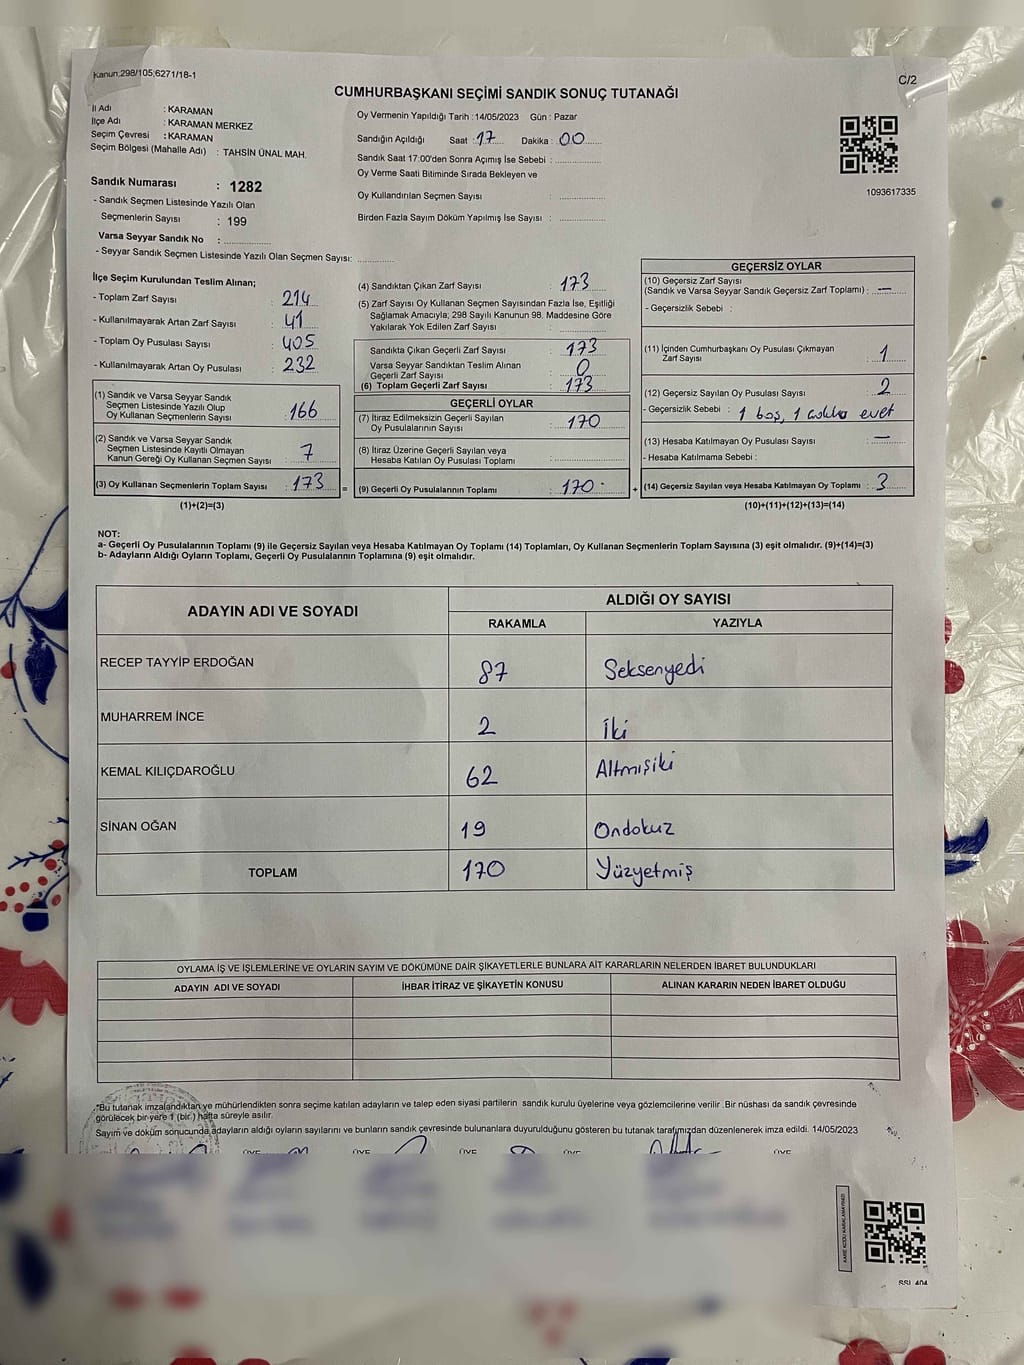 Kanun:298/105;6271/18-1
C/2
CUMHURBAŞKANI SEÇİMİ SANDIK SONUÇ TUTANAĞI
İl Adı : KARAMAN
İlçe Adı : KARAMAN MERKEZ
Seçim Çevresi : KARAMAN
Seçim Bölgesi (Mahalle Adı) : TAHSİN ÜNAL MAH.
Sandık Numarası : 1282
- Sandık Seçmen Listesinde Yazılı Olan
Seçmenlerin Sayısı : 199
Varsa Seyyar Sandık No :
- Seyyar Sandık Seçmen Listesinde Yazılı Olan Seçmen Sayısı:
Oy Vermenin Yapıldığı Tarih : 14/05/2023 Gün : Pazar
Sandığın Açıldığı Saat : 17 Dakika : 00
Sandık Saat 17:00'den Sonra Açımış İse Sebebi :
Oy Verme Saati Bitiminde Sırada Bekleyen ve
Oy Kullandırılan Seçmen Sayısı :
Birden Fazla Sayım Döküm Yapılmış İse Sayısı :
1093617335
İlçe Seçim Kurulundan Teslim Alınan;
- Toplam Zarf Sayısı : 214
- Kullanılmayarak Artan Zarf Sayısı : 41
- Toplam Oy Pusulası Sayısı : 405
- Kullanılmayarak Artan Oy Pusulası : 232
(1) Sandık ve Varsa Seyyar Sandık
Seçmen Listesinde Yazılı Olup
Oy Kullanan Seçmenlerin Sayısı : 166
(2) Sandık ve Varsa Seyyar Sandık
Seçmen Listesinde Kayıtlı Olmayan
Kanun Gereği Oy Kullanan Seçmen Sayısı : 7
(3) Oy Kullanan Seçmenlerin Toplam Sayısı : 173
(1)+(2)=(3)
(4) Sandıktan Çıkan Zarf Sayısı : 173
(5) Zarf Sayısı Oy Kullanan Seçmen Sayısından Fazla İse, Eşitliği
Sağlamak Amacıyla; 298 Sayılı Kanunun 98. Maddesine Göre
Yakılarak Yok Edilen Zarf Sayısı :
Sandıkta Çıkan Geçerli Zarf Sayısı : 173
Varsa Seyyar Sandıktan Teslim Alınan
Geçerli Zarf Sayısı : 0
(6) Toplam Geçerli Zarf Sayısı : 173
GEÇERLİ OYLAR
(7) İtiraz Edilmeksizin Geçerli Sayılan
Oy Pusulalarının Sayısı : 170
(8) İtiraz Üzerine Geçerli Sayılan veya
Hesaba Katılan Oy Pusulası Toplamı :
= (9) Geçerli Oy Pusulalarının Toplamı : 170
GEÇERSİZ OYLAR
(10) Geçersiz Zarf Sayısı
(Sandık ve Varsa Seyyar Sandık Geçersiz Zarf Toplamı) : —
- Geçersizlik Sebebi :
(11) İçinden Cumhurbaşkanı Oy Pusulası Çıkmayan
Zarf Sayısı : 1
(12) Geçersiz Sayılan Oy Pusulası Sayısı : 2
- Geçersizlik Sebebi : 1 boş, 1 evet
(13) Hesaba Katılmayan Oy Pusulası Sayısı : —
- Hesaba Katılmama Sebebi :
+ (14) Geçersiz Sayılan veya Hesaba Katılmayan Oy Toplamı : 3
(10)+(11)+(12)+(13)=(14)
NOT:
a- Geçerli Oy Pusulalarının Toplamı (9) ile Geçersiz Sayılan veya Hesaba Katılmayan Oy Toplamı (14) Toplamları, Oy Kullanan Seçmenlerin Toplam Sayısına (3) eşit olmalıdır. (9)+(14)=(3)
b- Adayların Aldığı Oyların Toplamı, Geçerli Oy Pusulalarının Toplamına (9) eşit olmalıdır.
ADAYIN ADI VE SOYADI ALDIĞI OY SAYISI
RAKAMLA YAZIYLA
RECEP TAYYİP ERDOĞAN 87 Seksenyedi
MUHARREM İNCE 2 İki
KEMAL KILIÇDAROĞLU 62 Altmışiki
SİNAN OĞAN 19 Ondokuz
TOPLAM 170 Yüzyetmiş
OYLAMA İŞ VE İŞLEMLERİNE VE OYLARIN SAYIM VE DÖKÜMÜNE DAİR ŞİKAYETLERLE BUNLARA AİT KARARLARIN NELERDEN İBARET BULUNDUKLARI
ADAYIN ADI VE SOYADI İHBAR İTİRAZ VE ŞİKAYETİN KONUSU ALINAN KARARIN NEDEN İBARET OLDUĞU
*Bu tutanak imzalandıktan ve mühürlendikten sonra seçime katılan adayların ve talep eden siyasi partilerin sandık kurulu üyelerine veya gözlemcilerine verilir. Bir nüshası da sandık çevresinde
görülecek bir yere 1 (bir) hafta süreyle asılır.
Sayım ve döküm sonucunda adayların aldığı oyların sayılarını ve bunların sandık çevresinde bulunanlara duyurulduğunu gösteren bu tutanak tarafımızdan düzenlenerek imza edildi. 14/05/2023
ÜYE ÜYE ÜYE ÜYE ÜYE